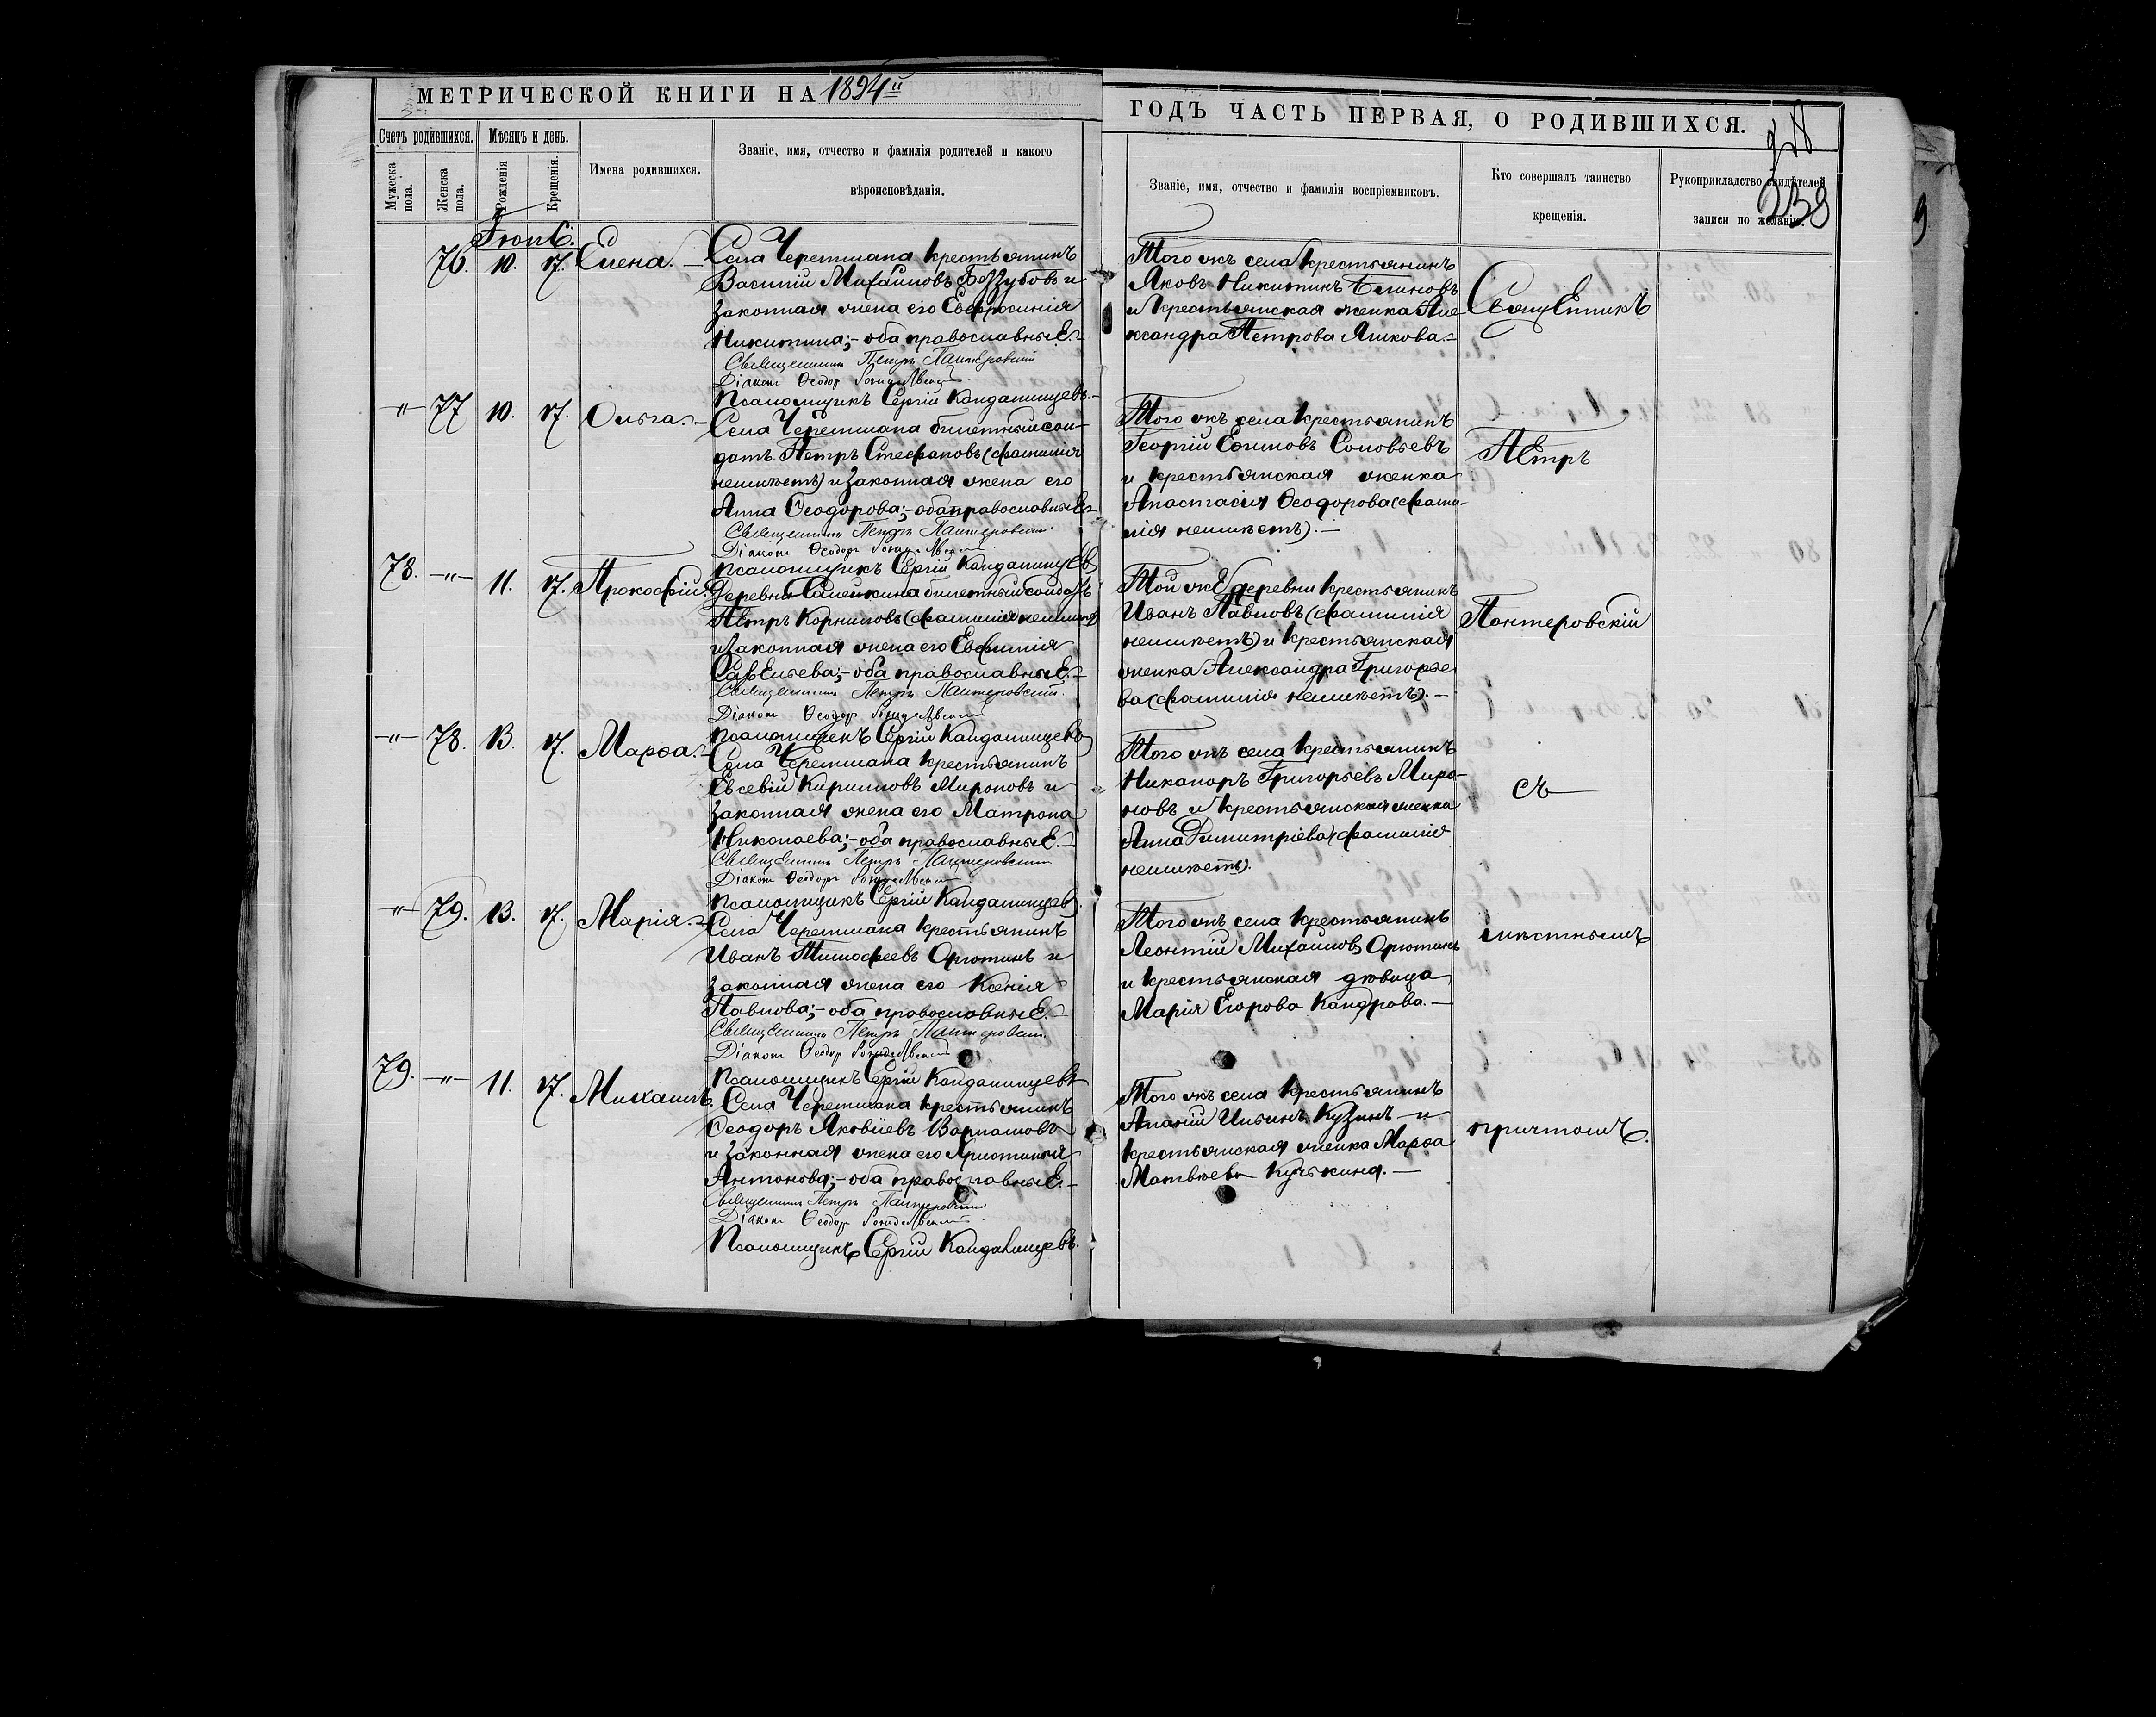 МЕТРИЧЕСКОЙ КНИГИ НА 1894й
ГОДЪ ЧАСТЬ ПЕРВАЯ, О РОДИВШИХСЯ.
238
Счетъ родившихся.
Мѣсяцъ и день.
Мужеска пола.
Женска пола.
Рожденія
Крещенія.
Имена родившихся.
Званіе, имя, отчество и фамилія родителей и какого
вѣроисповѣданія.
Званіе, имя, отчество и фамилія воспріемниковъ.
Кто совершалъ таинство
крещенія.
Рукоприкладство свидѣтелей
записи по желанію.
76. 10. 17. Елена.-
Села Черемшана крестьянинъ
Василій Михаиловъ Беззубовъ и
законная жена его Евфросинія
Никитина;- оба православные.-
Священникъ Петръ Пантеровскій
Діаконъ Ѳеодоръ
Псаломщикъ Сергій Кандалинцевъ.-
Того жъ села крестьянинъ
Яковъ Никитинъ Блиновъ
и крестьянская женка Але-
ксандра Петрова Яшкова.-
Священникъ
-"- 77 10. 17. Ольга.-
Села Черемшана билетный сол-
датъ Петръ Стефановъ (фамиліи
неимѣетъ) и законная жена его
Анна Ѳеодорова;- оба православные.-
Священникъ Петръ Пантеровскій
Діаконъ Ѳеодоръ
Псаломщикъ Сергій Кандалинцевъ
Того жъ села крестьянинъ
Георгій Ефимовъ Соловьевъ
и крестьянская женка
Анастасія Ѳеодорова (фами-
лія неимѣетъ).-
Петръ
78. -"- 11. 17. Прокофій.
Деревни Салейкина билетный солдатъ
Петръ Корниловъ (фамилія неимѣетъ)
и законная жена его Евфимія
Савельева;- оба православные.-
Священникъ Петръ Пантеровскій.
Діаконъ Ѳеодоръ
Псаломщикъ Сергій Кандалинцевъ
Той же деревни крестьянинъ
Иванъ Павловъ (фамилія
неимѣетъ) и крестьянская
женка Александра Григорье
ва (фамилія неимѣетъ).-
Пантеровскій
-"- 78. 13. 17. Марѳа.-
Села Черемшана крестьянинъ
Евсевій Кирилловъ Мироновъ и
законная жена его Матрона
Николаева;- оба православные.-
Священникъ Петръ Пантеровскій
Діаконъ Ѳеодоръ
Псаломщикъ Сергій Кандалинцевъ.
Того жъ села крестьянинъ
Никаноръ Григорьевъ Миро-
новъ и крестьянская женка
Анна Димитріева (фамилія
неимѣетъ).
съ
-"- 79. 13. 17. Марія.-
Села Черемшана крестьянинъ
Иванъ Тимофеевъ Орютинъ и
законная жена его Ксенія
Павлова;- оба православные.-
Священникъ Петръ Пантеровскій
Діаконъ Ѳеодоръ
Псаломщикъ Сергій Кандалинцевъ
Того жъ села крестьянинъ
Леонтій Михаиловъ Орютинъ
и крестьянская дѣвица
Марія Егорова Кандрова.-
мѣстнымъ
79. -"- 11. 17. Михаилъ.
Села Черемшана крестьянинъ
Ѳеодоръ Яковлевъ Варламовъ
и законная жена его Христинія
Антонова;- оба православные.-
Священникъ Петръ Пантеровскій
Діаконъ Ѳеодоръ
Псаломщикъ Сергій Кандалинцевъ.
Того жъ села крестьянинъ
Ананій Ильинъ Кузинъ и
крестьянская женка Марѳа
Матвѣева Кулькина.-
причтомъ.